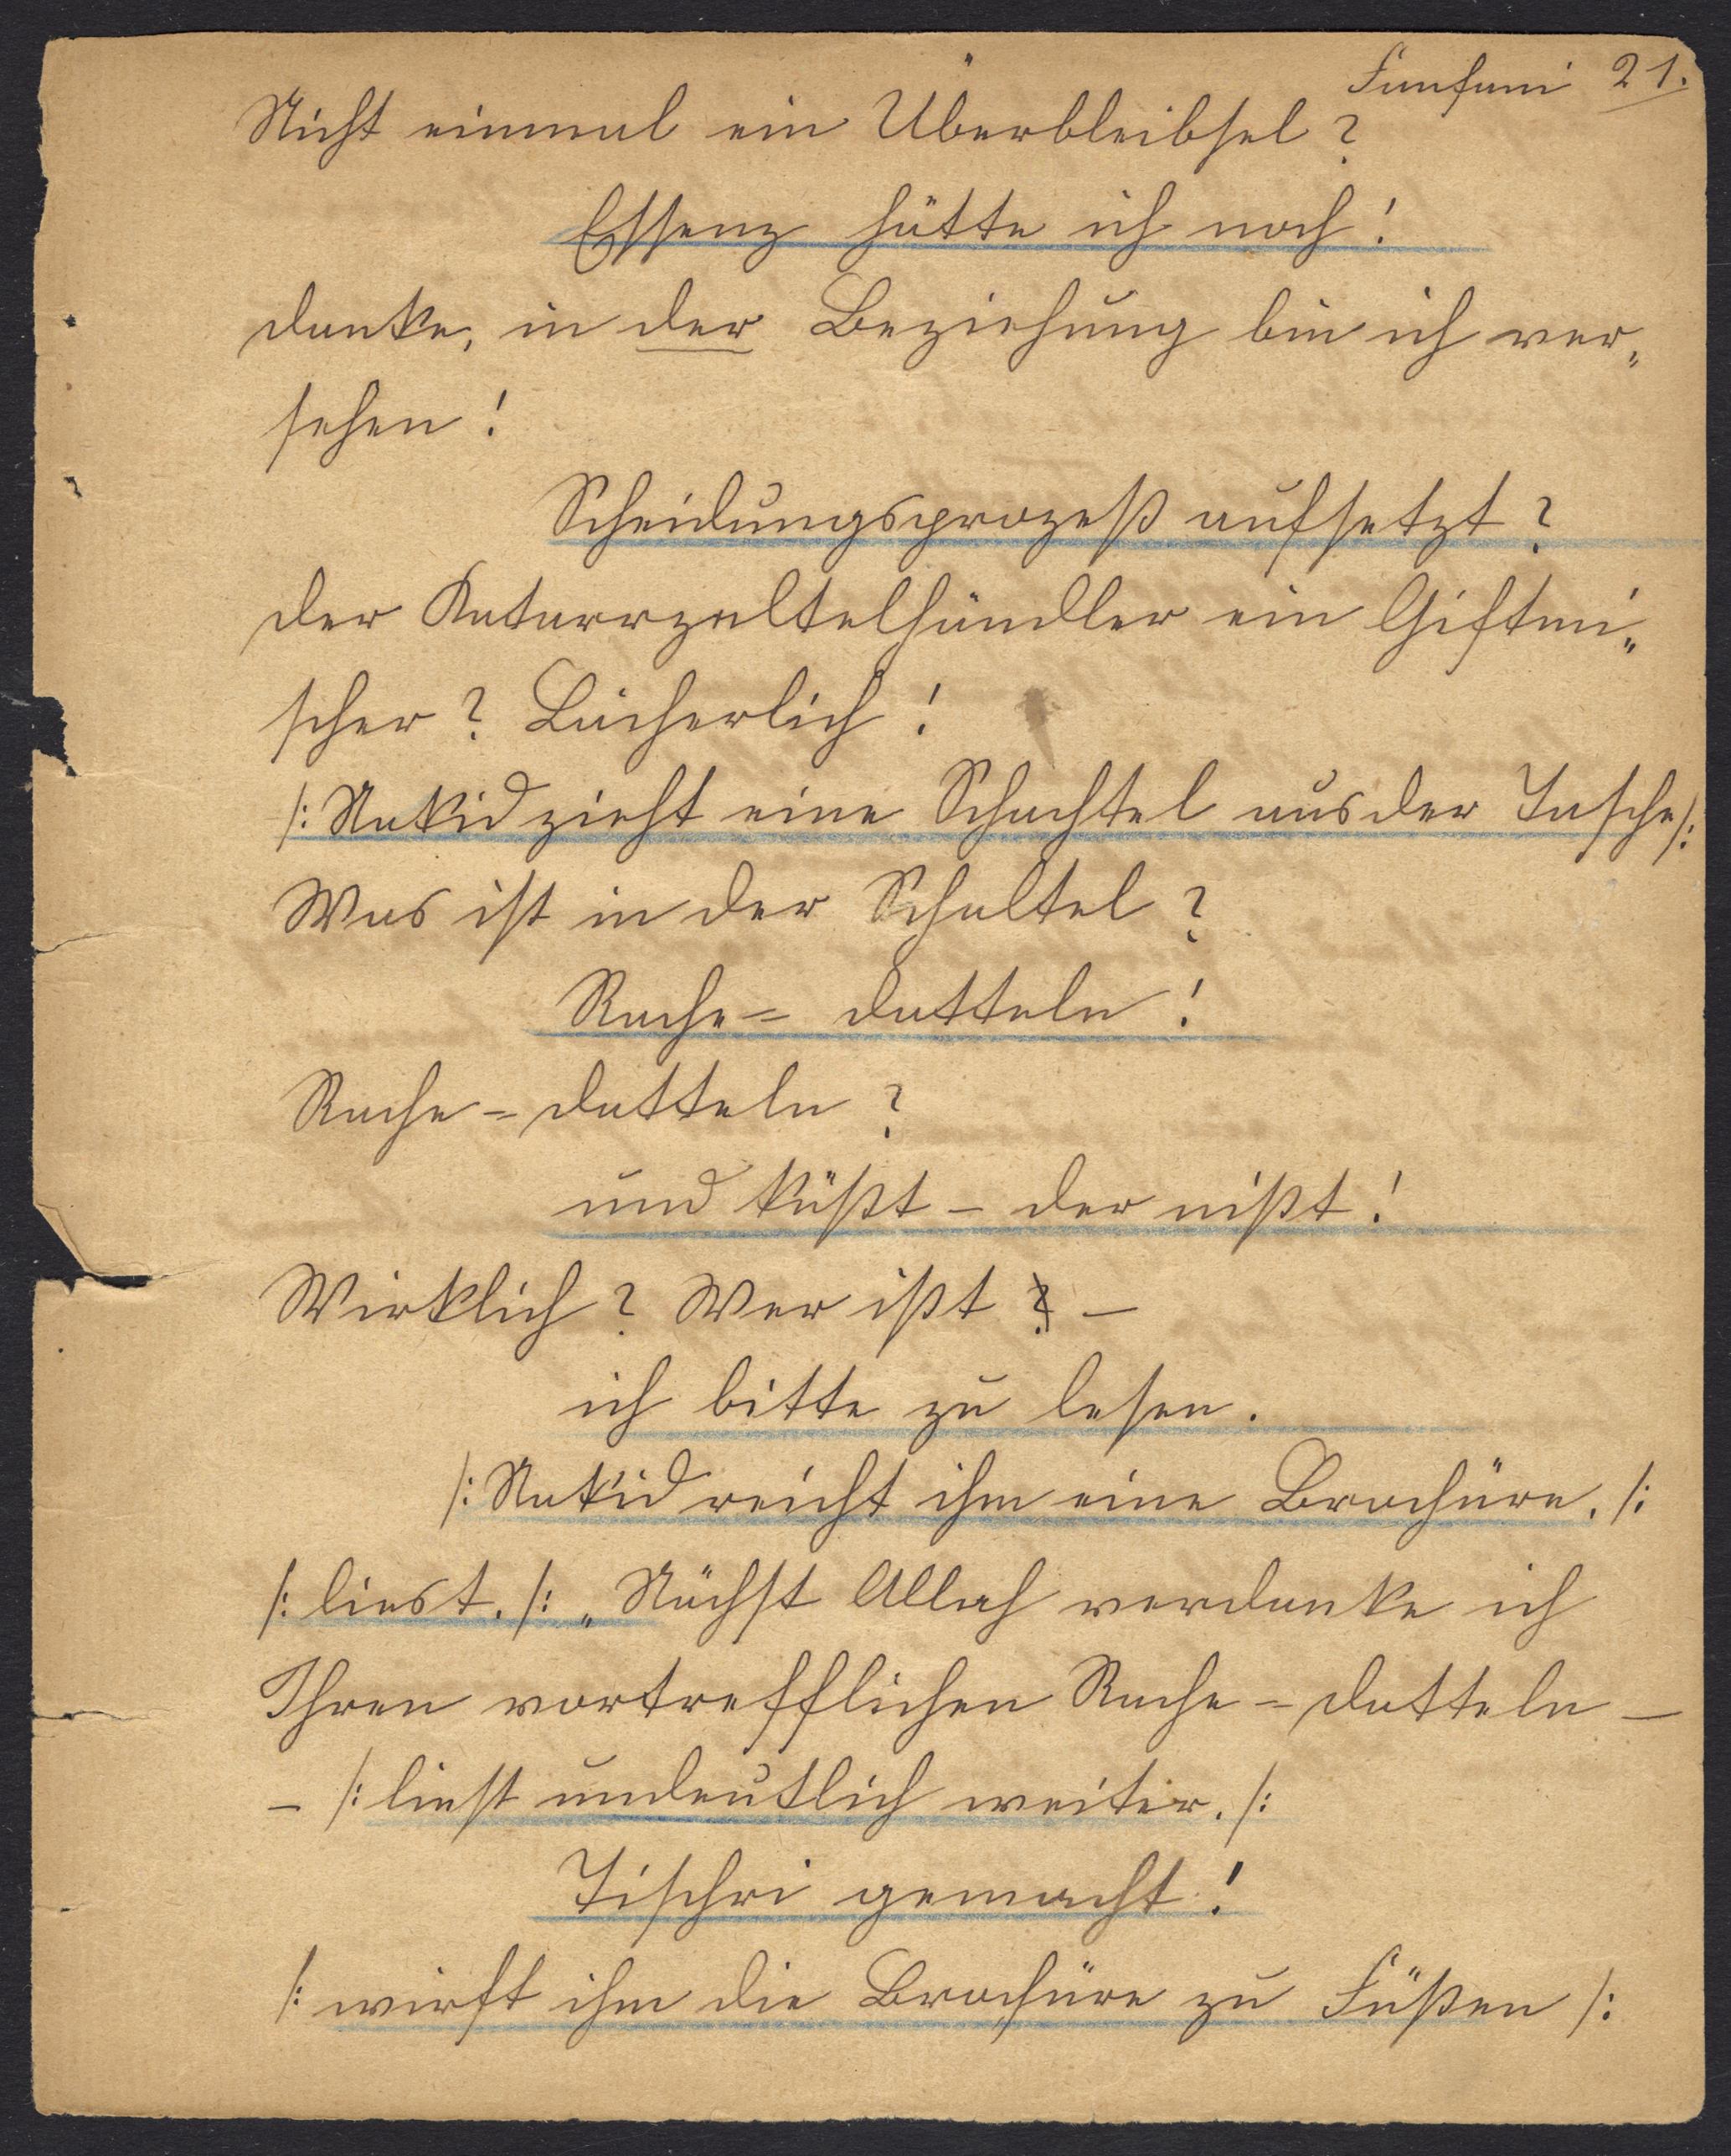 Fanfani 21.
Nicht einmal ein Überbleibsel?
Essenz hätte ich noch!
danke, in der Beziehung bin ich ver„
sehen!
Scheidungsprozeß aufsetzt?
der Katarrzeltelhändler ein Giftmi„
scher? Lächerlich!
/: Nakid zieht eine Schachtel aus der Tasche /:
Was ist in der Schaltel?
Rache= datteln!
Rache= datteln?
und küßt – der nißt!
Wirklich? Wer ißt –
ich bitte zu lesen.
/: Nakid reicht ihm eine Brochüre. /:
/: liest. /: „Nächst Allah verdanke ich
Ihren vortrefflichen Rache= datteln –
– /: liest undeutlich weiter. /:
Tischri gemacht!
/: wirft ihm die Brochüre zu Füßen /: